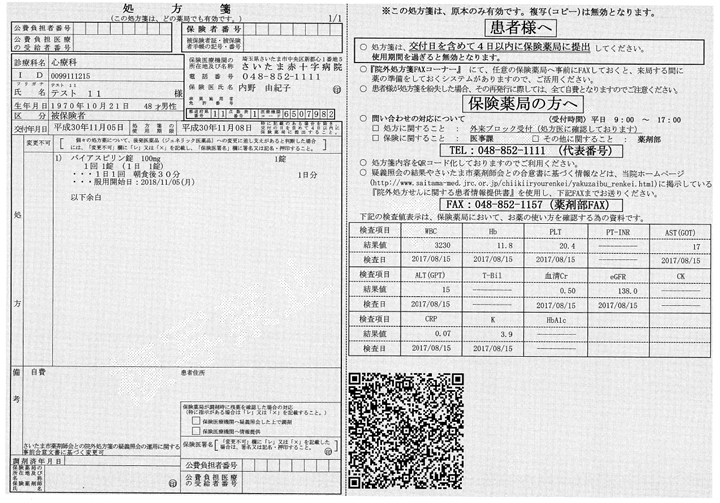 処 方 箋
(この処方箋は、どの薬局でも有効です。)
1/1
公費負担者番号
公費負担医療の受給者番号
保険者番号
被保険者証・被保険者手帳の記号・番号
診療科名 心療科
I D 0099111215
フリガナ テスト 11
氏 名 テスト 11 様
生年月日 1970年10月21日 48才男性
区 分 被保険者
保険医療機関の所在地及び名称
埼玉県さいたま市中央区新都心1番地5
さいたま赤十字病院
電 話 番 号 048-852-1111
保険医氏名 内野 由紀子 ㊞
都道府県番号 11 点数表番号 1 医療機関コード 6507982
交付年月日 平成30年11月05日
処方箋の使用期間 平成30年11月08日
特に記載のある場合を除き交付の日を含めて4日以内に保険薬局に提出すること。
変更不可
個々の処方薬について、後発医薬品(ジェネリック医薬品)への変更に差し支えがあると判断した場合には、「変更不可」欄に「レ」又は「×」を記載し、「保険医署名」欄に署名又は記名・押印すること。
処 方
1) バイアスピリン錠 100mg 1錠
1回 1錠 (1日 1錠)
・・・1日1回 朝食後30分 1日分
・・・服用開始日:2018/11/05(月)
以下余白
備 考
自費
患者住所
保険薬局が調剤時に残薬を確認した場合の対応
(特に指示がある場合は「レ」又は「×」を記載すること。)
□ 保険医療機関へ疑義照会した上で調剤
□ 保険医療機関へ情報提供
さいたま市薬剤師会との院外処方箋の疑義照会の運用に関する事前合意文書に基づく変更可
保険医署名
「変更不可」欄に「レ」又は「×」を記載した場合は、署名又は記名・押印すること。
㊞
調剤済年月日
公費負担者番号
保険薬局の所在地及び名称
保険薬剤師氏名 ㊞
公費負担医療の受給者番号
※この処方箋は、原本のみ有効です。複写(コピー)は無効となります。
患者様へ
○ 処方箋は、交付日を含めて4日以内に保険薬局に提出してください。
使用期間を過ぎると無効となります。
○ 『院外処方箋FAXコーナー』にて、任意の保険薬局へ事前にFAXしておくと、来局する間に
薬の準備をしておくシステムがありますので、ご活用ください。
○ 患者様が処方箋を紛失した場合、その再発行に際しては、全て自費となりますのでご注意ください。
保険薬局の方へ
○ 問い合わせの対応について (受付時間)平日 9:00 ~ 17:00
□ 処方に関すること : 外来ブロック受付(処方医に確認しております)
□ 保険に関すること : 医事課 □ その他に関すること : 薬剤部
TEL:048-852-1111 (代表番号)
○ 処方箋内容をQRコード化しておりますのでご利用ください。
○ 疑義照会の結果やさいたま市薬剤師会との合意書に基づく情報などは、当院ホームページ
(http://www.saitama-med.jrc.or.jp/chiikiiryourenkei/yakuzaibu_renkei.html)に掲示している
『院外処方せんに関する患者情報提供書』を使用し、下記FAXまでお送りください。
FAX:048-852-1157(薬剤部FAX)
下記の検査値表示は、保険薬局において、お薬の使い方を確認する為の資料です。
検査項目 WBC Hb PLT PT-INR AST(GOT)
結果値 3230 11.8 20.4 ---------- 17
検査日 2017/08/15 2017/08/15 2017/08/15 ---------- 2017/08/15
検査項目 ALT(GPT) T-Bil 血清Cr eGFR CK
結果値 15 ---------- 0.50 138.0 ----------
検査日 2017/08/15 ---------- 2017/08/15 2017/08/15 ----------
検査項目 CRP K HbA1c
結果値 0.07 3.9 ----------
検査日 2017/08/15 2017/08/15 ----------